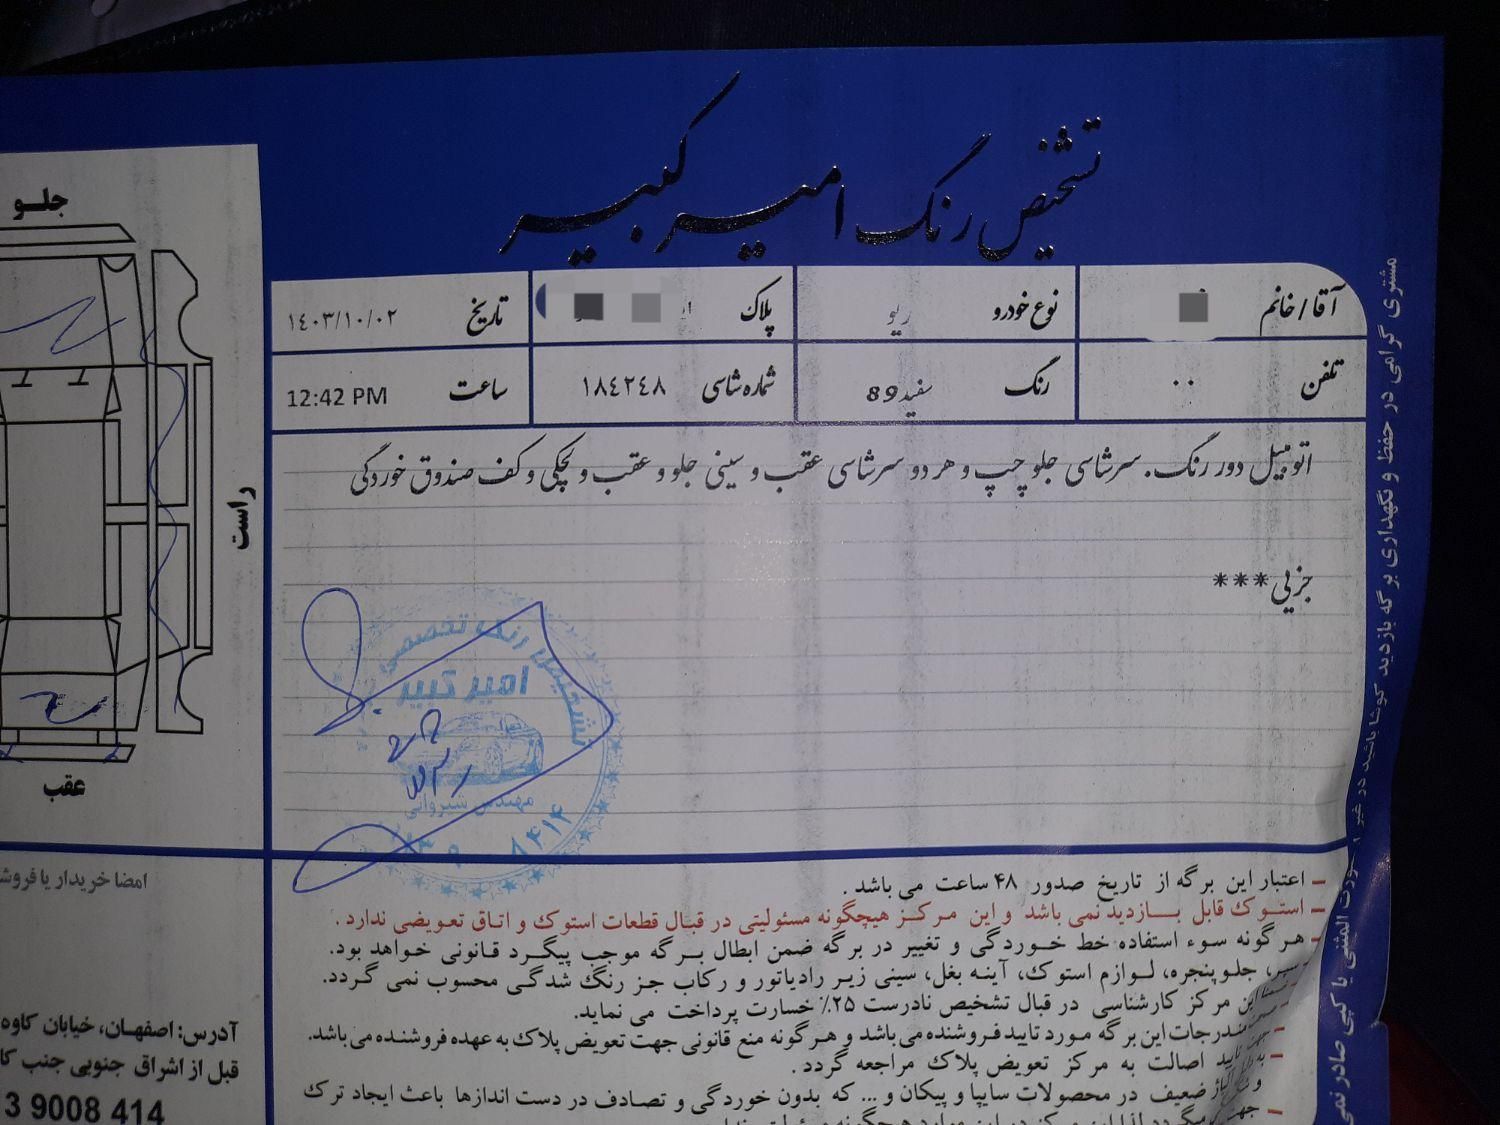 تشخیص رنگ امیرکبیر
آقا/خانم
نوع خودرو ریو
پلاک
تاریخ ۱۴۰۳/۱۰/۰۲
تلفن ۰۰
رنگ سفید 89
شماره شاسی ۱۸۴۲۴۸
ساعت 12:42 PM
اتومبیل دور رنگ. سرشاسی جلو چپ و هر دو سرشاسی عقب و سینی جلو و عقب و لچکی و کف صندوق خوردگی
جزیی***
جلو
راست
عقب
تشخیص رنگ تخصصی
امیر کبیر
مهندس شیروانی
– اعتبار این برگه از تاریخ صدور ۴۸ ساعت می باشد .
– استوک قابل بازدید نمی باشد و این مرکز هیچگونه مسئولیتی در قبال قطعات استوک و اتاق تعویضی ندارد .
– هرگونه سوء استفاده خط خوردگی و تغییر در برگه ضمن ابطال برگه موجب پیگرد قانونی خواهد بود.
سپر، جلوپنجره، لوازم استوک، آینه بغل، سینی زیر رادیاتور و رکاب جز رنگ شدگی محسوب نمی گردد.
این مرکز کارشناسی در قبال تشخیص نادرست ۲۵٪ خسارت پرداخت می نماید.
مندرجات این برگه مورد تایید فروشنده می باشد و هرگونه منع قانونی جهت تعویض پلاک به عهده فروشنده می باشد.
– جهت تایید اصالت به مرکز تعویض پلاک مراجعه گردد .
ضعیف در محصولات سایپا و پیکان و ... که بدون خوردگی و تصادف در دست اندازها باعث ایجاد ترک
امضا خریدار یا فروش
آدرس: اصفهان، خیابان کاوه
قبل از اشراق جنوبی جنب کا
3 9008 414
مشتری گرامی در حفظ و نگهداری برگه بازدید کوشا باشید در غیر المثنی یا کپی صادر نمی